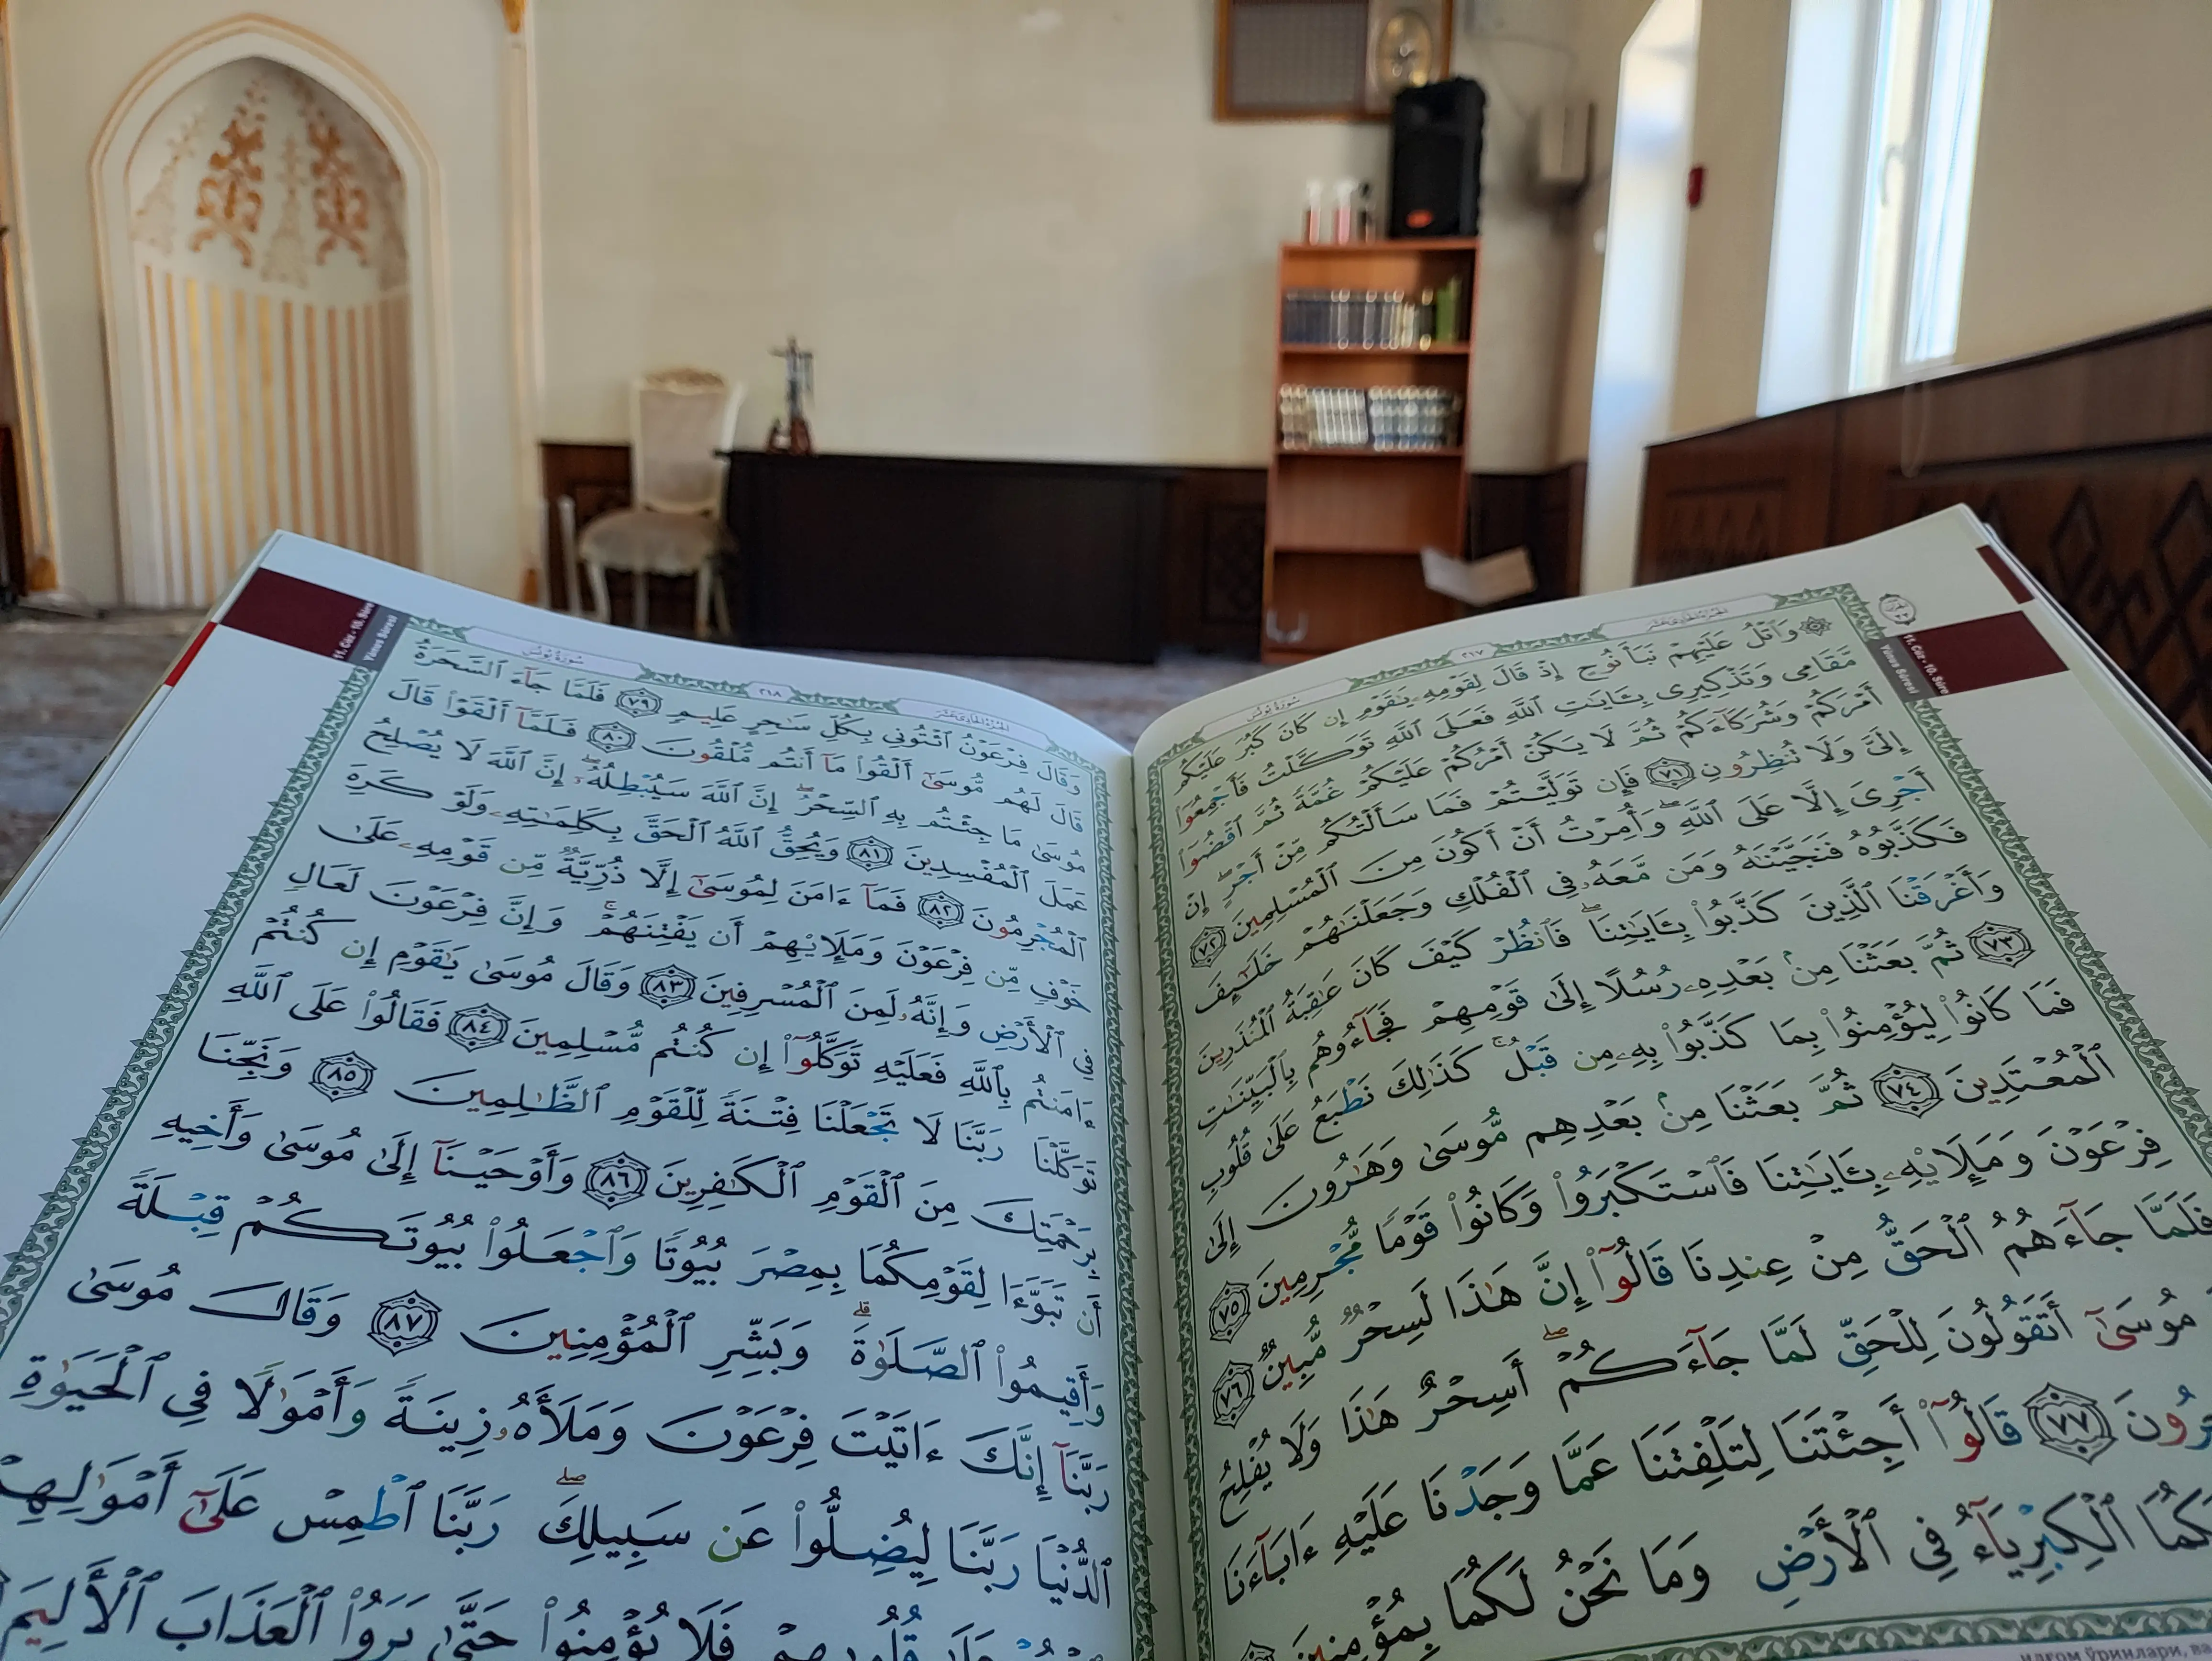 11. Cüz - 10. Sûre
Yûnus Sûresi
سُورَةُ يُونُسَ
٢١٧
الجُزْءُ الحَادِي عَشَرَ
۞ وَٱتْلُ عَلَيْهِمْ نَبَأَ نُوحٍ إِذْ قَالَ لِقَوْمِهِۦ يَٰقَوْمِ إِن كَانَ كَبُرَ عَلَيْكُم
مَّقَامِى وَتَذْكِيرِى بِـَٔايَٰتِ ٱللَّهِ فَعَلَى ٱللَّهِ تَوَكَّلْتُ فَأَجْمِعُوٓا۟
أَمْرَكُمْ وَشُرَكَآءَكُمْ ثُمَّ لَا يَكُنْ أَمْرُكُمْ عَلَيْكُمْ غُمَّةً ثُمَّ ٱقْضُوٓا۟
إِلَىَّ وَلَا تُنظِرُونِ ٧١ فَإِن تَوَلَّيْتُمْ فَمَا سَأَلْتُكُم مِّنْ أَجْرٍ ۖ إِنْ
أَجْرِىَ إِلَّا عَلَى ٱللَّهِ ۖ وَأُمِرْتُ أَنْ أَكُونَ مِنَ ٱلْمُسْلِمِينَ ٧٢
فَكَذَّبُوهُ فَنَجَّيْنَٰهُ وَمَن مَّعَهُۥ فِى ٱلْفُلْكِ وَجَعَلْنَٰهُمْ خَلَٰٓئِفَ
وَأَغْرَقْنَا ٱلَّذِينَ كَذَّبُوا۟ بِـَٔايَٰتِنَا ۖ فَٱنظُرْ كَيْفَ كَانَ عَٰقِبَةُ ٱلْمُنذَرِينَ
٧٣ ثُمَّ بَعَثْنَا مِنۢ بَعْدِهِۦ رُسُلًا إِلَىٰ قَوْمِهِمْ فَجَآءُوهُم بِٱلْبَيِّنَٰتِ
فَمَا كَانُوا۟ لِيُؤْمِنُوا۟ بِمَا كَذَّبُوا۟ بِهِۦ مِن قَبْلُ ۚ كَذَٰلِكَ نَطْبَعُ عَلَىٰ قُلُوبِ
ٱلْمُعْتَدِينَ ٧٤ ثُمَّ بَعَثْنَا مِنۢ بَعْدِهِم مُّوسَىٰ وَهَٰرُونَ إِلَىٰ
فِرْعَوْنَ وَمَلَإِي۟هِۦ بِـَٔايَٰتِنَا فَٱسْتَكْبَرُوا۟ وَكَانُوا۟ قَوْمًا مُّجْرِمِينَ ٧٥
فَلَمَّا جَآءَهُمُ ٱلْحَقُّ مِنْ عِندِنَا قَالُوٓا۟ إِنَّ هَٰذَا لَسِحْرٌ مُّبِينٌ ٧٦
مُوسَىٰٓ أَتَقُولُونَ لِلْحَقِّ لَمَّا جَآءَكُمْ ۖ أَسِحْرٌ هَٰذَا وَلَا يُفْلِحُ
٧٧ قَالُوٓا۟ أَجِئْتَنَا لِتَلْفِتَنَا عَمَّا وَجَدْنَا عَلَيْهِ ءَابَآءَنَا
ٱلْكِبْرِيَآءُ فِى ٱلْأَرْضِ وَمَا نَحْنُ لَكُمَا بِمُؤْمِنِينَ
11. Cüz - 10. Sûre
Yûnus Sûresi
سُورَةُ يُونُسَ
٢١٨
الجُزْءُ الحَادِي عَشَرَ
وَقَالَ فِرْعَوْنُ ٱئْتُونِى بِكُلِّ سَٰحِرٍ عَلِيمٍ ٧٩ فَلَمَّا جَآءَ ٱلسَّحَرَةُ
قَالَ لَهُم مُّوسَىٰٓ أَلْقُوا۟ مَآ أَنتُم مُّلْقُونَ ٨٠ فَلَمَّآ أَلْقَوْا۟ قَالَ
مُوسَىٰ مَا جِئْتُم بِهِ ٱلسِّحْرُ ۖ إِنَّ ٱللَّهَ سَيُبْطِلُهُۥٓ ۖ إِنَّ ٱللَّهَ لَا يُصْلِحُ
عَمَلَ ٱلْمُفْسِدِينَ ٨١ وَيُحِقُّ ٱللَّهُ ٱلْحَقَّ بِكَلِمَٰتِهِۦ وَلَوْ كَرِهَ
ٱلْمُجْرِمُونَ ٨٢ فَمَآ ءَامَنَ لِمُوسَىٰٓ إِلَّا ذُرِّيَّةٌ مِّن قَوْمِهِۦ عَلَىٰ
خَوْفٍ مِّن فِرْعَوْنَ وَمَلَإِي۟هِمْ أَن يَفْتِنَهُمْ ۚ وَإِنَّ فِرْعَوْنَ لَعَالٍ
فِى ٱلْأَرْضِ وَإِنَّهُۥ لَمِنَ ٱلْمُسْرِفِينَ ٨٣ وَقَالَ مُوسَىٰ يَٰقَوْمِ إِن كُنتُمْ
ءَامَنتُم بِٱللَّهِ فَعَلَيْهِ تَوَكَّلُوٓا۟ إِن كُنتُم مُّسْلِمِينَ ٨٤ فَقَالُوا۟ عَلَى ٱللَّهِ
تَوَكَّلْنَا رَبَّنَا لَا تَجْعَلْنَا فِتْنَةً لِّلْقَوْمِ ٱلظَّٰلِمِينَ ٨٥ وَنَجِّنَا
بِرَحْمَتِكَ مِنَ ٱلْقَوْمِ ٱلْكَٰفِرِينَ ٨٦ وَأَوْحَيْنَآ إِلَىٰ مُوسَىٰ وَأَخِيهِ
أَن تَبَوَّءَا لِقَوْمِكُمَا بِمِصْرَ بُيُوتًا وَٱجْعَلُوا۟ بُيُوتَكُمْ قِبْلَةً
وَأَقِيمُوا۟ ٱلصَّلَوٰةَ ۗ وَبَشِّرِ ٱلْمُؤْمِنِينَ ٨٧ وَقَالَ مُوسَىٰ
رَبَّنَآ إِنَّكَ ءَاتَيْتَ فِرْعَوْنَ وَمَلَأَهُۥ زِينَةً وَأَمْوَٰلًا فِى ٱلْحَيَوٰةِ
ٱلدُّنْيَا رَبَّنَا لِيُضِلُّوا۟ عَن سَبِيلِكَ ۖ رَبَّنَا ٱطْمِسْ عَلَىٰٓ أَمْوَٰلِهِمْ
قُلُوبِهِمْ فَلَا يُؤْمِنُوا۟ حَتَّىٰ يَرَوُا۟ ٱلْعَذَابَ ٱلْأَلِيمَ
ўринлари,